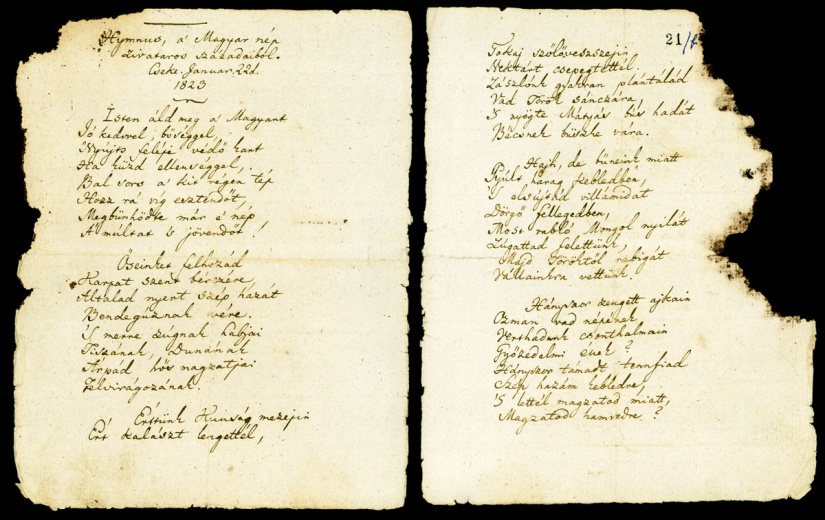 Hymnus, a' Magyar nép
zivataros századaiból.
Cseke. Januar. 22d.
1823
Isten áld meg a' Magyart
Jó kedvvel, bőséggel,
Nyújts feléje védő kart
Ha küzd ellenséggel,
Bal sors a' kit régen tép
Hozz rá víg esztendőt,
Megbűnhödte már e' nép
A' múltat 's jövendőt!
Őseinket felhozád
Kárpát szent bérczére
Általad nyert szép hazát
Bendegúznak vére.
'S merre zúgnak habjai
Tiszának, Dunának
Árpád hős magzatjai
Felvirágozának.
Értünk Kunság mezejin
Ért kalászt lengettél,
21/
Tokaj szőlővesszejin
Nektárt csepegtettél.
Zászlónk gyakran plántálád
Vad Török sánczára,
'S nyögte Mátyás bús hadát
Bécsnek büszke vára.
Hajh, de bűneink miatt
Gyúlt harag kebledben,
'S elsújtád villámidat
Dörgő fellegedben,
Most rabló Mongol nyilát
Zúgattad felettünk,
Majd Töröktől rabigát
Vállainkra vettünk.
Hányszor zengett ajkain
Ozman vad népének
Vert hadunk csonthalmain
Győzedelmi ének?
Hányszor támadt tennfiad
Szép hazám kebledre,
'S lettél magzatod miatt,
Magzatod hamvvedre?